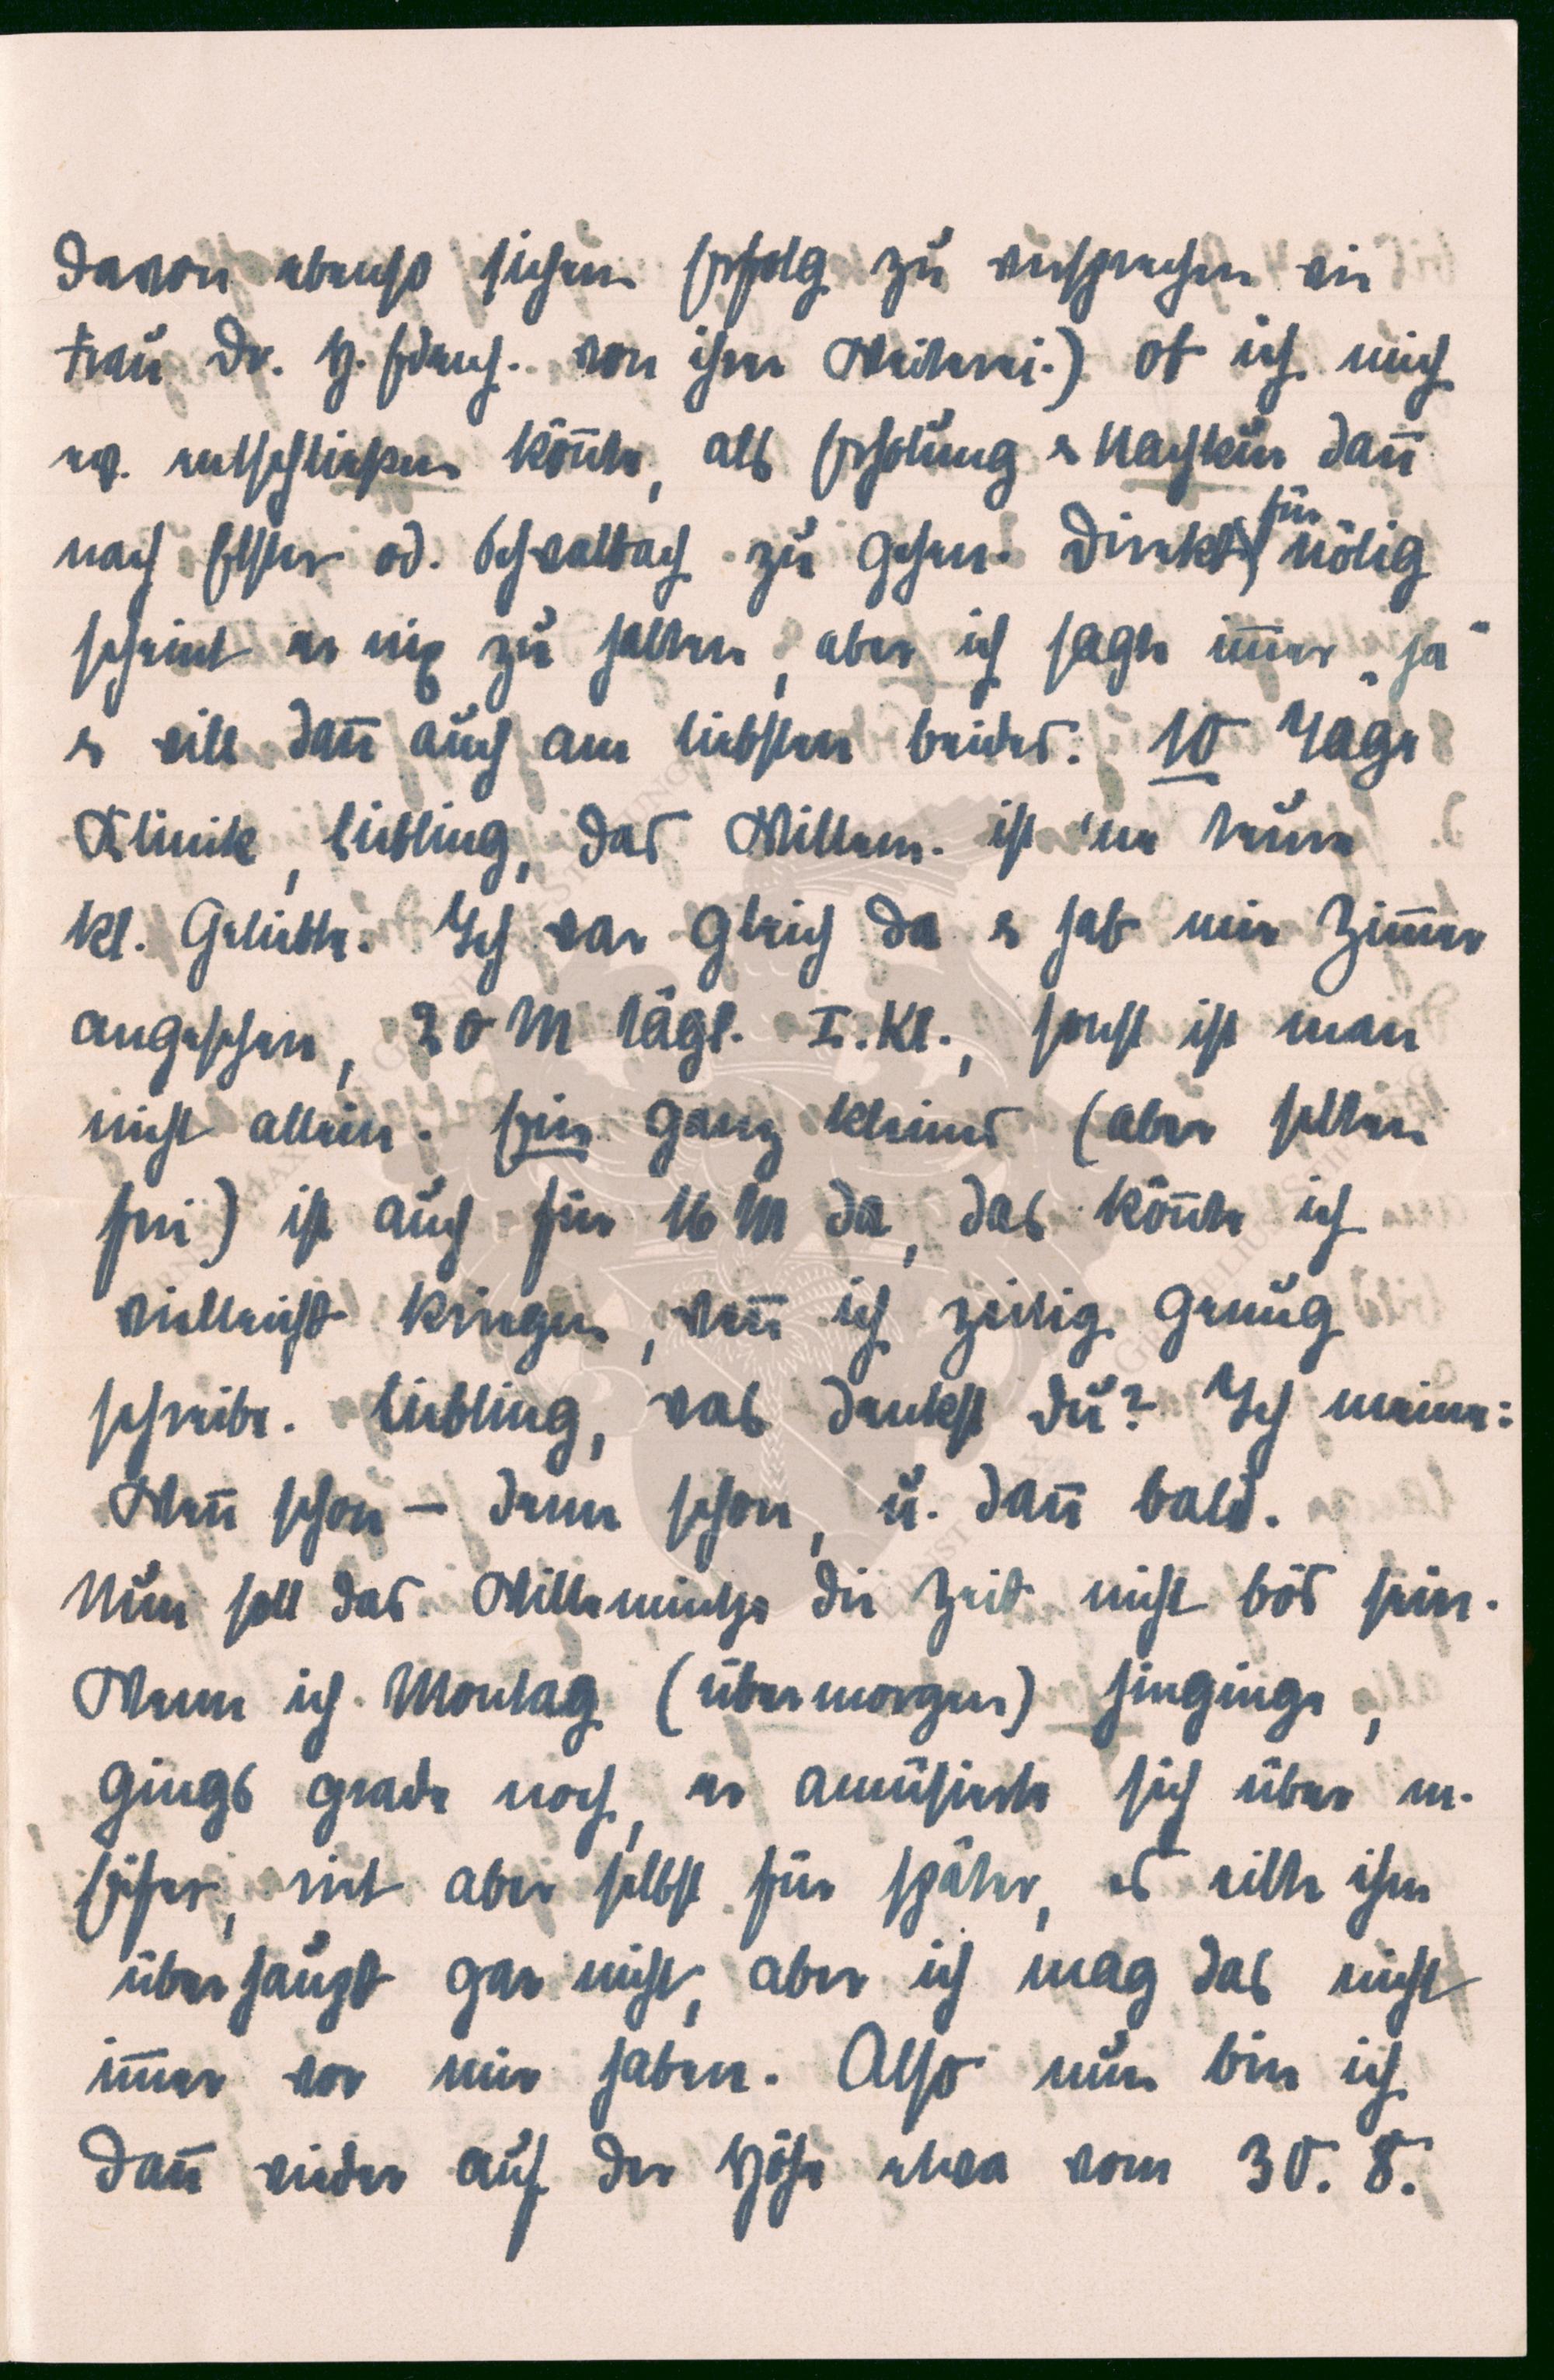 davon ebenso sichern Erfolg zu versprechen wie
Frau Dr. H. sprach. von ihrer Meiterei.) ob ich mich
ev. entschließen könnte, als Erholung & Nachkur dann
nach Elster od. Schwalbach zu gehen. Direkt für nötig
scheint er nix zu halten, aber ich sagte immer „ja"
& will dann auch am liebsten beides. 10 Tage
Klinik, Liebling, das Willem. ist 'ne teure
kl. Geliebte. Ich war gleich da & hab mir Zimmer
angesehen, 20 M tägl. I. Kl., sonst ist man
nicht allein. Ein ganz kleines (aber selten
frei) ist auch für 16 M da, das könnte ich
vielleicht kriegen, wenn ich zeitig genug
schreibe. Liebling, was denkst du? Ich meine:
Wenn schon – denn schon, u. dann bald.
Nun soll das Willeminche die Zeit nicht bös sein.
Wenn ich Montag (übermorgen) hinginge,
gings grade noch, er amüsierte sich über m.
Eifer, riet aber selbst für später, es eilte ihm
überhaupt gar nicht, aber ich mag das nicht
immer vor mir haben. Also nun bin ich
dann wieder auf der Höhe etwa vom 30. 8.